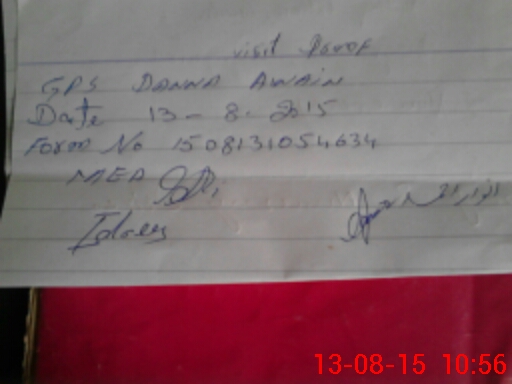 visit Proof
GPS DANNA AWAIN
Date 13-8-2015
Form No 1508131054634
MEA
13-08-15 10:56